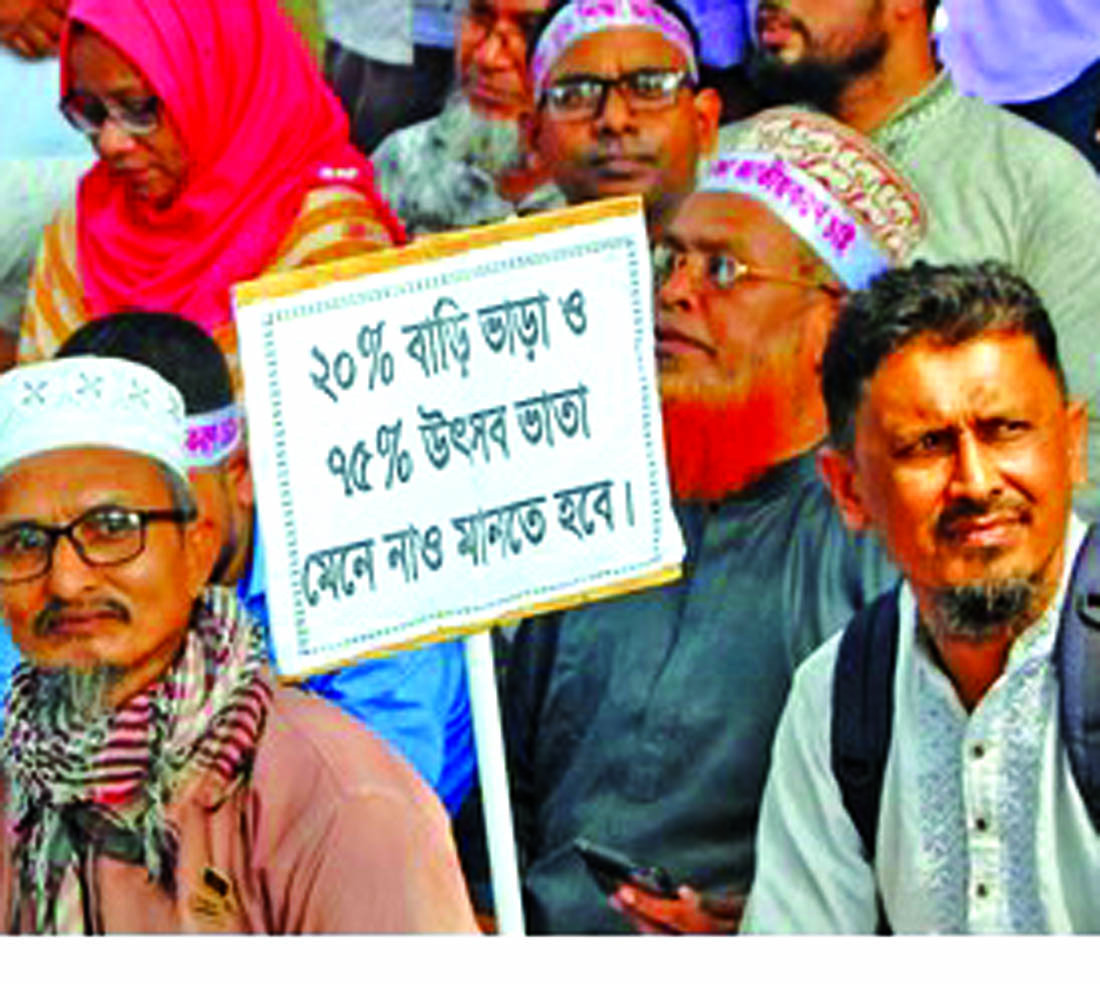 জাতীয়করণ চাই
২০% বাড়ি ভাড়া ও
৭৫% উৎসব ভাতা
মেনে নাও মানতে হবে।